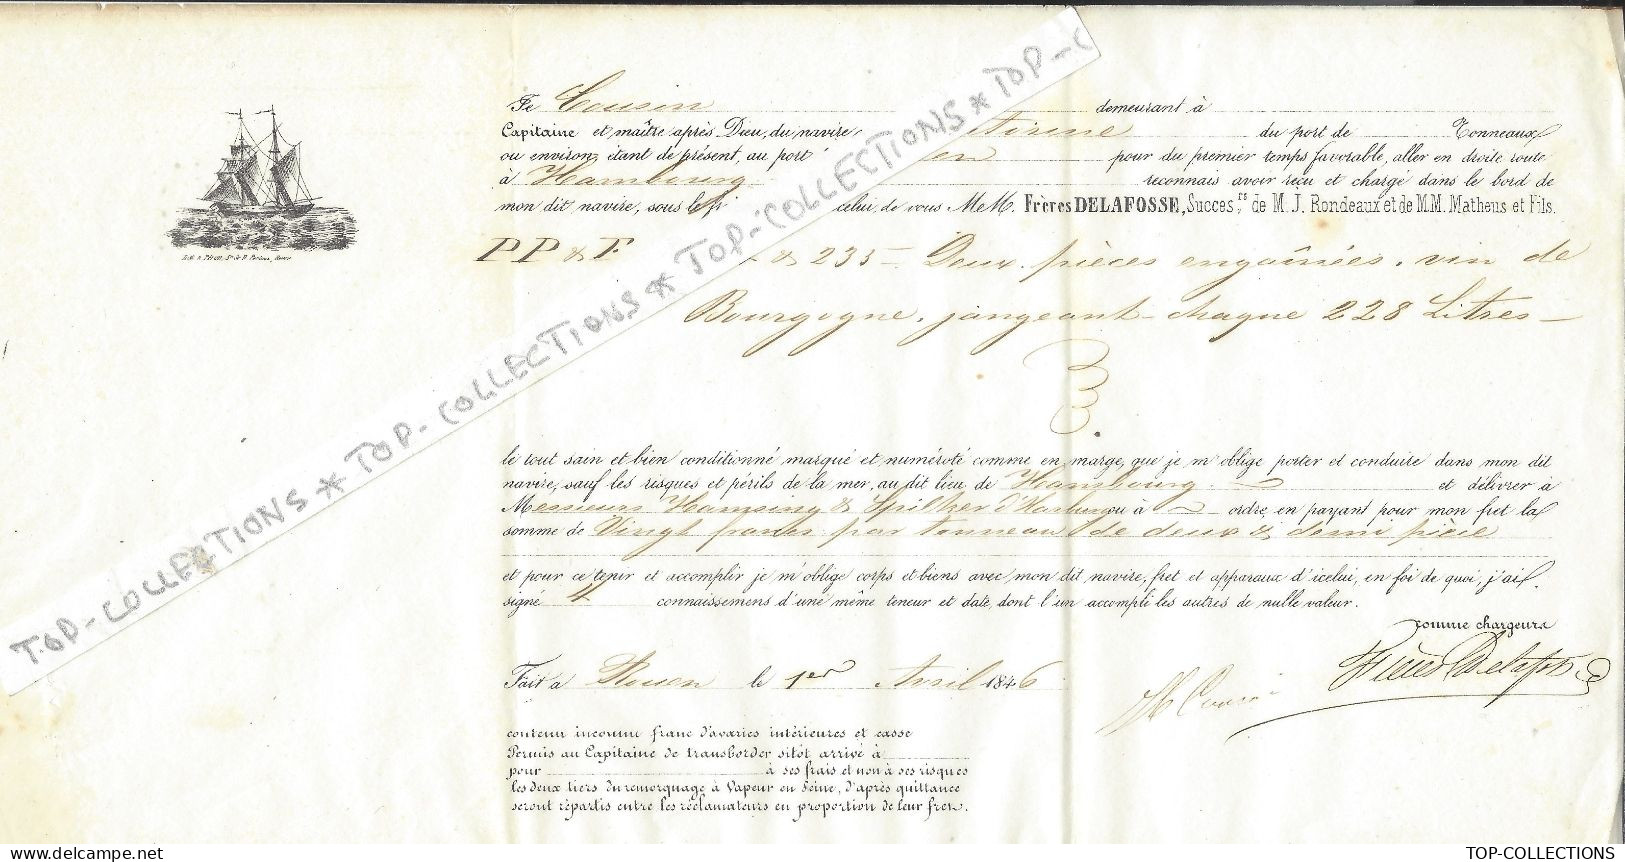 Je Cousin demeurant à
Capitaine et maître après Dieu, du navire du port de Tonneaux
ou environ étant de présent, au port pour du premier temps favorable, aller en droite route
à Hambourg reconnais avoir reçu et chargé dans le bord de
mon dit navire, sous le celui, de vous MeM. Frères DELAFOSSE, Succes,rs de M. J. Rondeaux et de M.M. Matheus et Fils.
PP & F. & 235 - Deux pièces engainées, vin de
Bourgogne, jaugeant chaque 228 Litres -
le tout sain et bien conditionné marqué et numéroté comme en marge, que je m'oblige porter et conduire dans mon dit
navire, sauf les risques et périls de la mer, au dit lieu de Hambourg et délivrer à
Messieurs & ou à ordre, en payant pour mon fret la
somme de Vingt francs par tonneau de deux & demi pièce
et pour ce tenir et accomplir je m'oblige corps et biens avec mon dit navire, fret et apparaux d'icelui, en foi de quoi, j'ai
signé 4 connaissemens d'une même teneur et date, dont l'un accompli les autres de nulle valeur.
comme chargeurs
Frères Delafosse
Fait à Rouen le 1er Avril 1846
contenu inconnu franc d'avaries intérieures et casse
Permis au Capitaine de transborder sitôt arrivé à
pour à ses frais et non à ses risques
les deux tiers du remorquage à Vapeur en Seine, d'après quittance
seront répartis entre les réclamateurs en proportion de leur fret.
TOP-COLLECTIONS * TOP-COLLECTIONS * TOP-COLLECTIONS * TOP-COLLECTIONS * TOP-C
TOP-COLLECTIONS